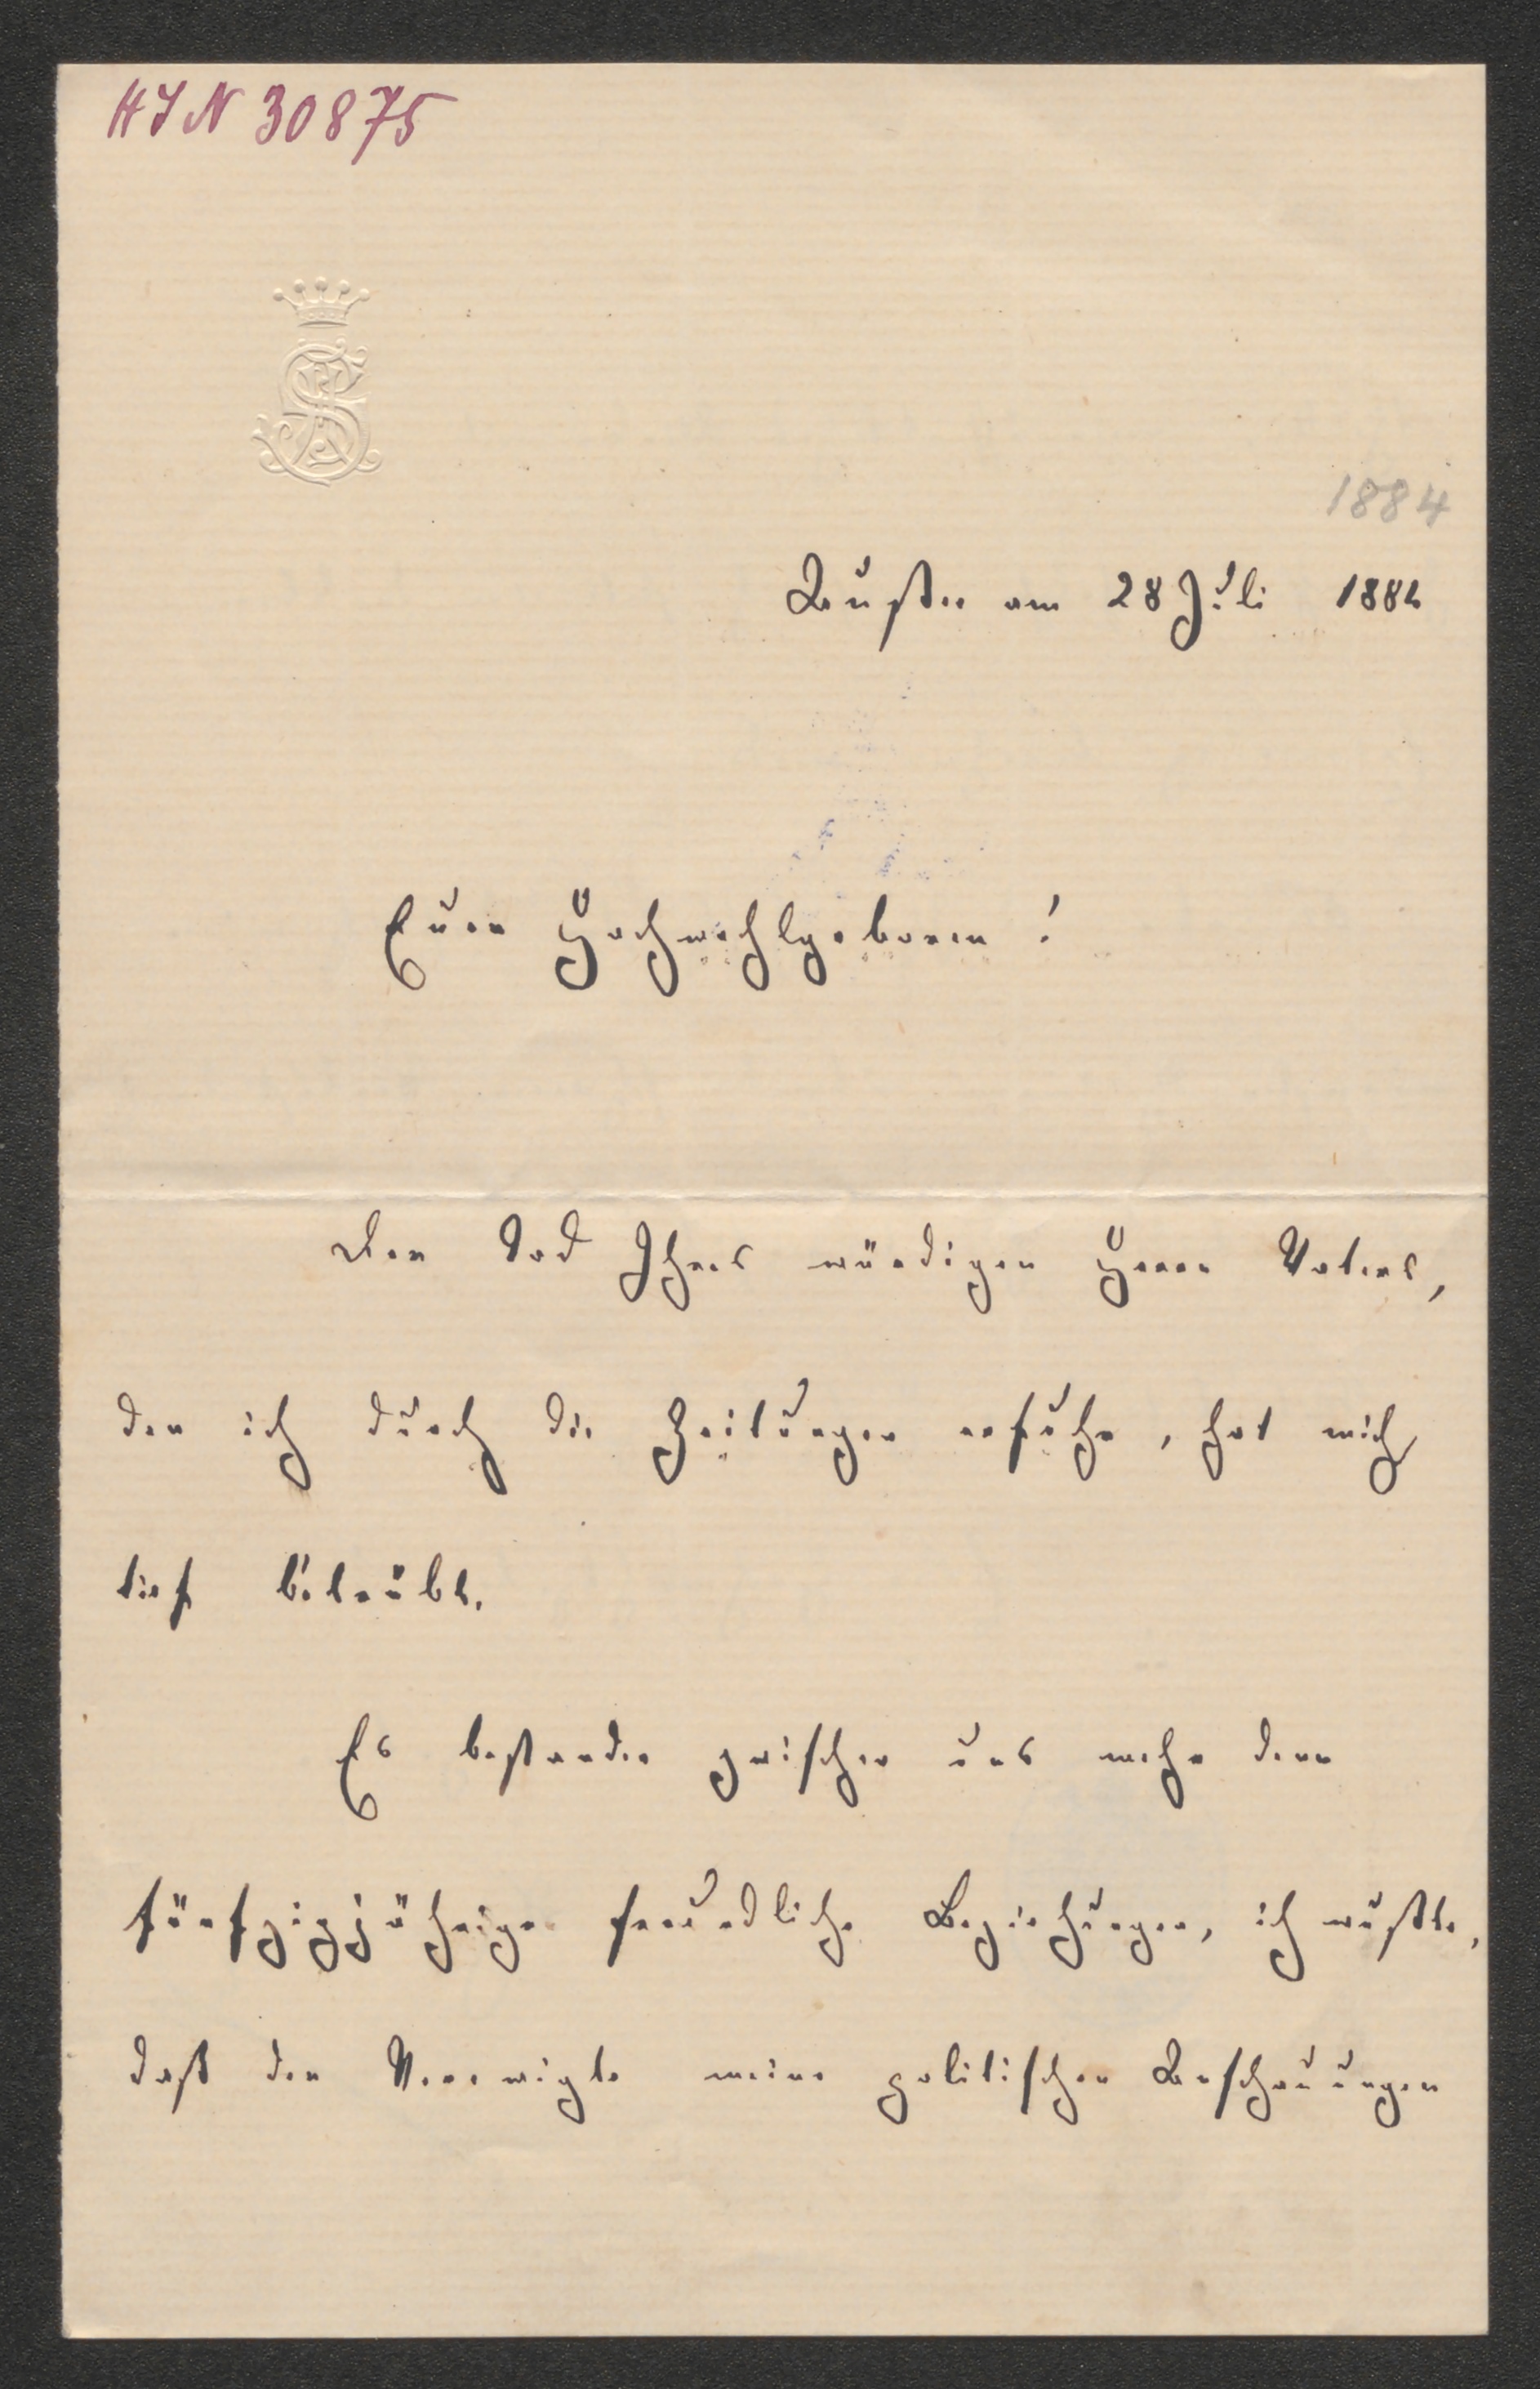 HIN 30875
1884
Außee am 28 Juli 1884
Euer Hochwohlgeboren!
Der Tod Ihres würdigen Herrn Vaters,
den ich durch die Zeitungen erfuhr, hat mich
tief betrübt.
Es bestanden zwischen uns mehr denn
fünfzigjährige freundliche Beziehungen, ich wußte,
daß der Verewigte meine politischen Anschauungen